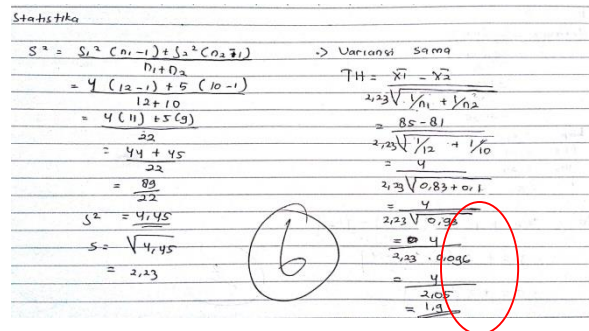 Statistika
S² = S₁² (n₁-1) + S₂² (n₂-1)
n₁+n₂
= 4 (12-1) + 5 (10-1)
12+10
= 4(11) + 5(9)
22
= 44 + 45
22
= 89
22
S² = 4,45
S = √4,45
= 2,23
6
•> Variansi sama
TH = x̄1 - x̄2
2,23 √1/n1 + 1/n2
= 85-81
2,23 √1/12 + 1/10
= 4
2,23 √0,83 + 0,1
= 4
2,23 √0,93
= 4
2,23 . 0,096
= 4
2,05
= 1,9